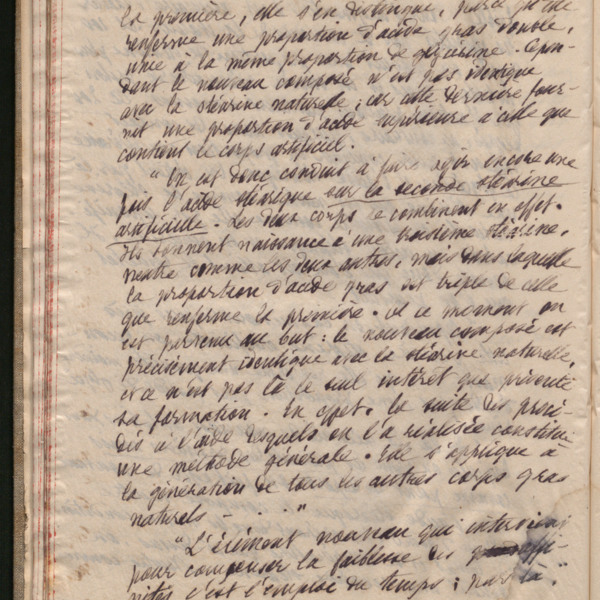 la première, elle s'en distingue, parce qu'elle
renferme une proportion d'acide gras double,
unie à la même proportion de glycérine. Cepen-
dant le nouveau composé n'est pas identique
avec la stéarine naturelle ; car cette dernière four-
nit une proportion d'acide supérieure à celle que
contient ce corps artificiel.
"On est donc conduit à faire agir encore une
fois l'acide stéarique sur la seconde stéarine
artificielle. Les deux corps se combinent en effet.
Ils donnent naissance à une troisième stéarine,
neutre comme les deux autres, mais dans laquelle
la proportion d'acide gras est triple de celle
que renferme la première. A ce moment on
est parvenu au but : le nouveau composé est
précisément identique avec la stéarine naturelle,
et ce n'est pas là le seul intérêt que présente
sa formation. En effet, la suite des procé-
dés à l'aide desquels on l'a réalisée constitue
une méthode générale. Elle s'applique à
la génération de tous les autres corps gras
naturels - . . ."
"L'élément nouveau qui intervient
pour compenser la faiblesse des affi-
nités c'est l'emploi du temps ; par là